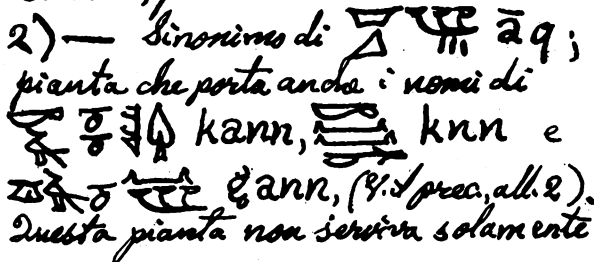 2) — Sinonimo di āq;
pianta che porta anche i nomi di
kann, knn e
ġann, (V. il prec., all. 2).
Questa pianta non serviva solamente